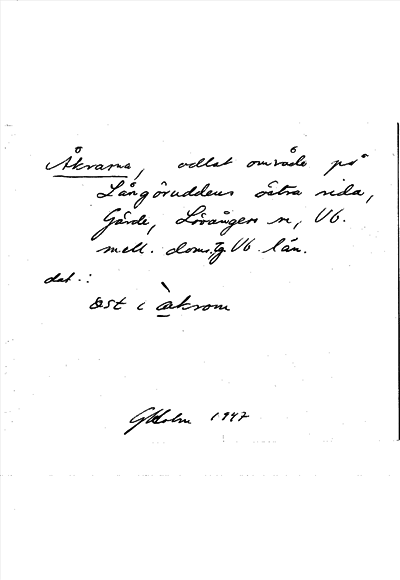 Åkrarna, odlat område på
Långöruddens östra sida,
Gärde, Lövångers sn, Vb.
mell. doms.g. Vb. län.
dat.:
øst i àkrom
GHolm 1947